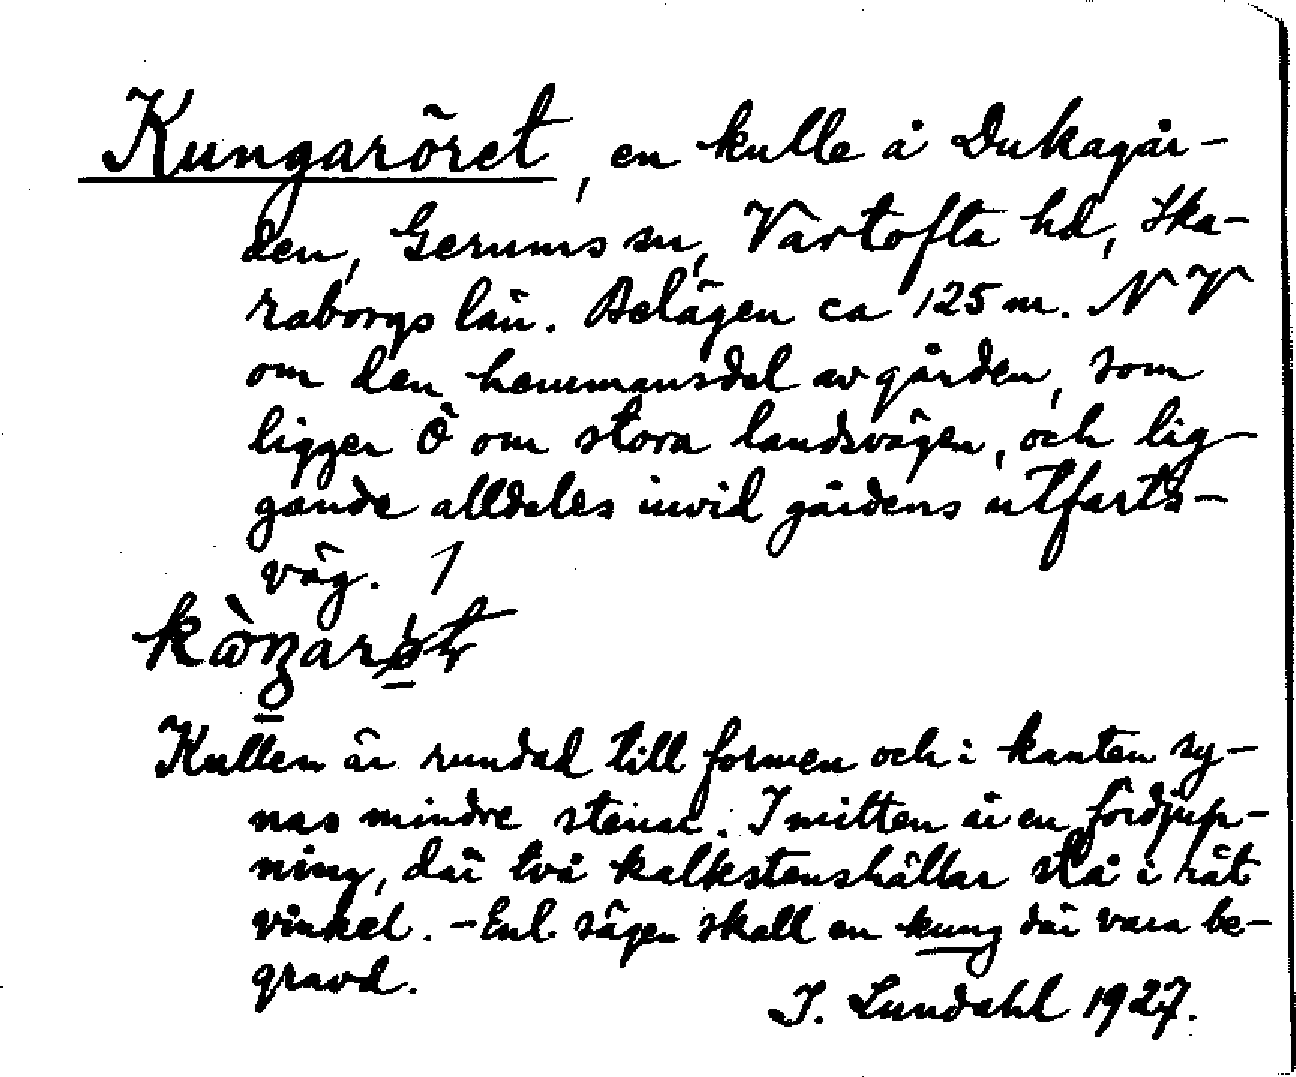 Kungaröret, en kulle å Dukagår-
den, Gerums sn, Vartofta hd, Ska-
raborgs län. Belägen ca 125 m. NV
om den hemmansdel av gården, som
ligger Ö om stora landsvägen, och lig-
gande alldeles invid gårdens utfarts-
väg. 1
Kullen är rundad till formen och i kanten sy-
nas mindre stenar. I mitten är en fördjup-
ning, där två kalkstenshällar stå i rät
vinkel. - Enl. sägen skall en kung där vara be-
gravd.
I. Lundahl 1927.